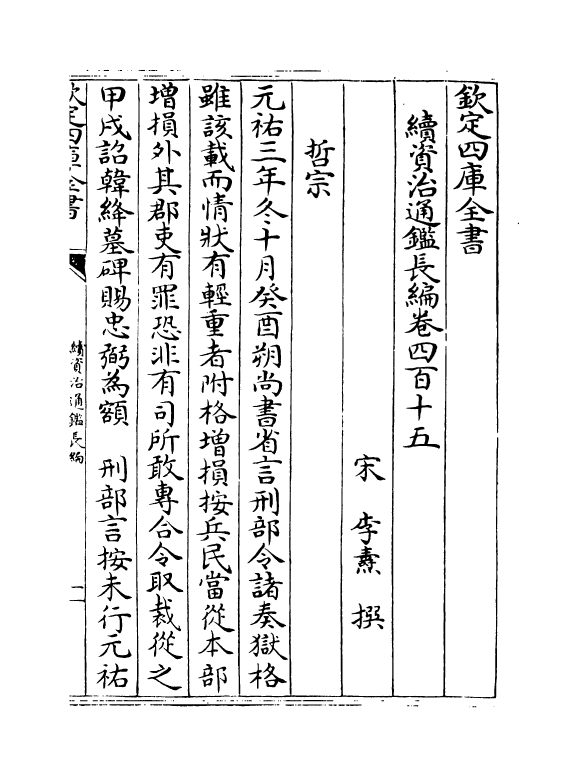 欽定四庫全書
續資治通鑑長編卷四百十五
宋 李燾 撰
哲宗
元祐三年冬十月癸酉朔尚書省言刑部令諸奏獄格
雖該載而情狀有輕重者附格增損按兵民當從本部
增損外其郡吏有罪恐非有司所敢專合令取裁從之
甲戌詔韓絳墓碑賜忠弼為額 刑部言按未行元祐
欽定四庫全書
續資治通鑑長編
一